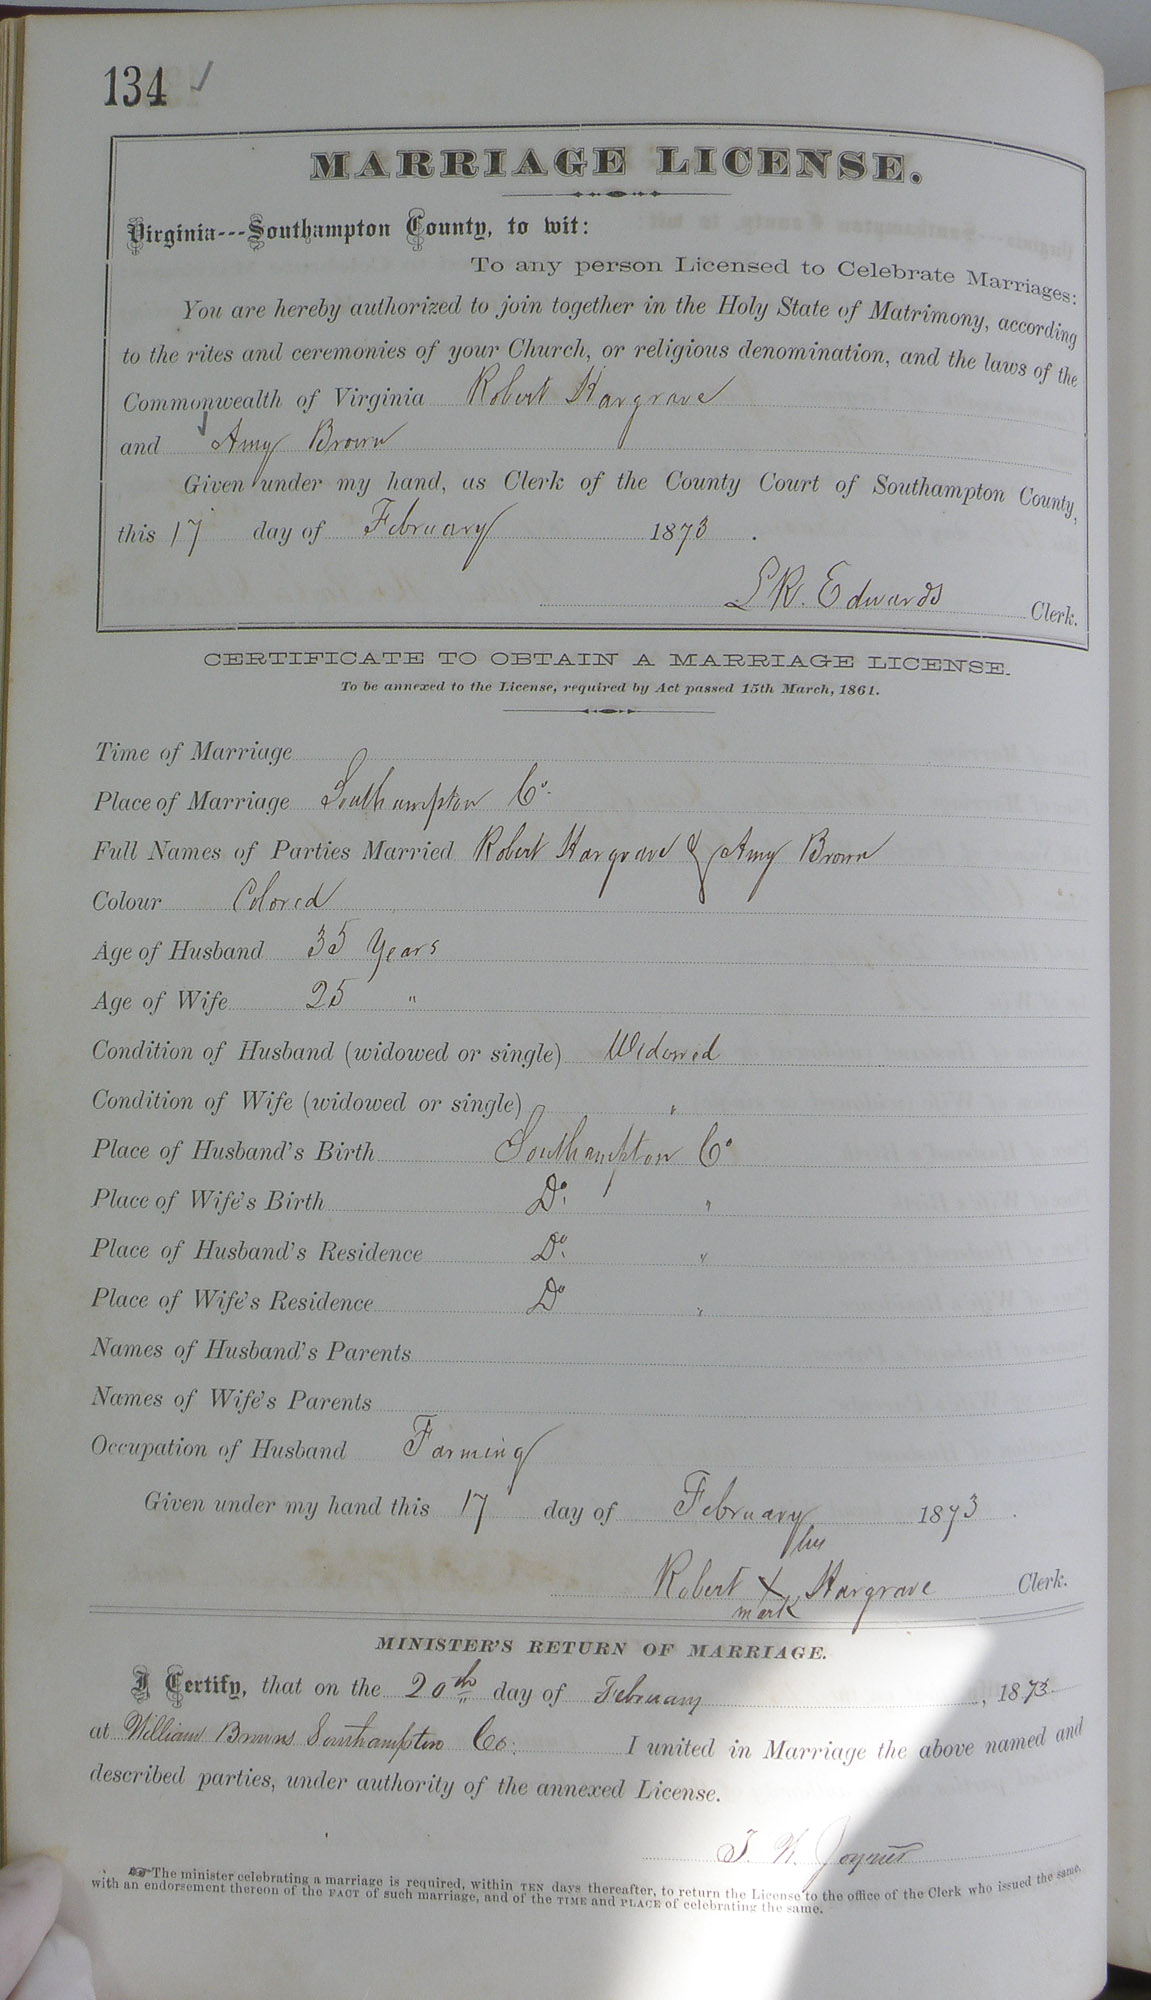 134 ✓
MARRIAGE LICENSE.
Virginia---Southampton County, to wit:
To any person Licensed to Celebrate Marriages:
You are hereby authorized to join together in the Holy State of Matrimony, according
to the rites and ceremonies of your Church, or religious denomination, and the laws of the
Commonwealth of Virginia Robert Hargrave
and Amy Brown
Given under my hand, as Clerk of the County Court of Southampton County,
this 17 day of February 1873.
L R. Edwards Clerk.
CERTIFICATE TO OBTAIN A MARRIAGE LICENSE.
To be annexed to the License, required by Act passed 15th March, 1861.
Time of Marriage
Place of Marriage Southampton Co.
Full Names of Parties Married Robert Hargrave & Amy Brown
Colour Colored
Age of Husband 35 Years
Age of Wife 25 "
Condition of Husband (widowed or single) Widowed
Condition of Wife (widowed or single) "
Place of Husband's Birth Southampton Co
Place of Wife's Birth Do. "
Place of Husband's Residence Do. "
Place of Wife's Residence Do "
Names of Husband's Parents
Names of Wife's Parents
Occupation of Husband Farming
Given under my hand this 17 day of February 1873.
his
Robert X Hargrave Clerk.
mark
MINISTER'S RETURN OF MARRIAGE.
I Certify, that on the 20th day of February, 1873
at William Browns Southampton Co. I united in Marriage the above named and
described parties, under authority of the annexed License.
J. W. Joyner
☞ The minister celebrating a marriage is required, within TEN days thereafter, to return the License to the office of the Clerk who issued the same,
with an endorsement thereon of the FACT of such marriage, and of the TIME and PLACE of celebrating the same.